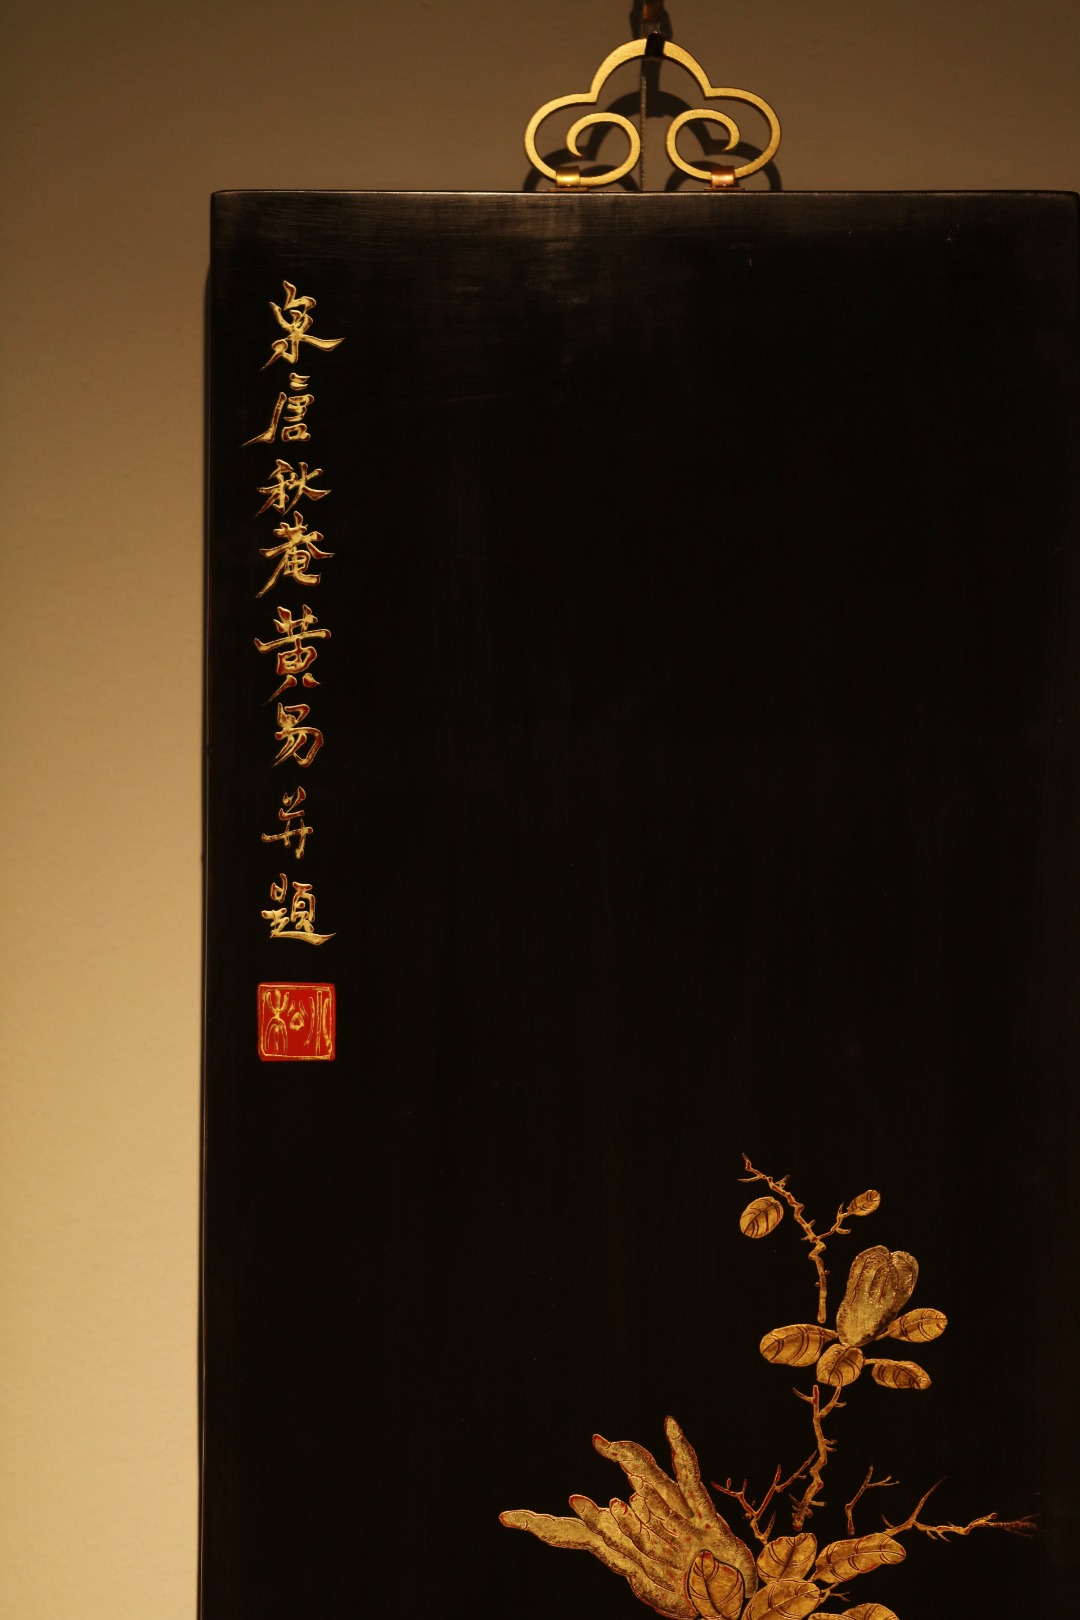 泉唐秋菴黄易并題
小松